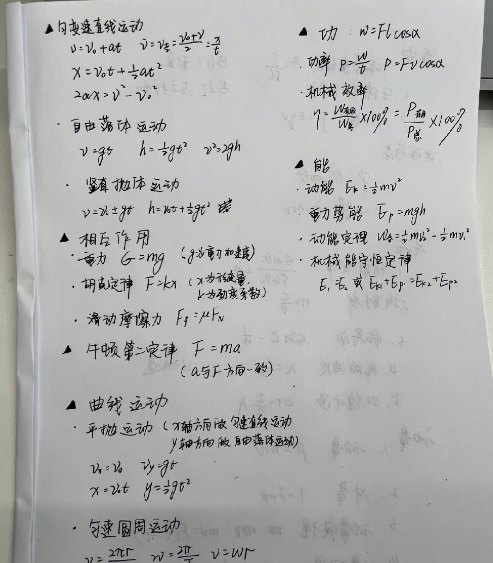 ▲匀变速直线运动
v=v₀+at  v̄=v_{t/2}=\frac{v₀+v}{2}=\frac{x}{t}
x=v₀t+½at²
2ax=v²-v₀²
· 自由落体运动
v=gt  h=½gt²  v²=2gh
· 竖直抛体运动
v=v₀±gt  h=v₀t±½gt²
▲ 相互作用
· 重力 G=mg (g为重力加速度)
· 胡克定律 F=kx (x为形变量,
k为劲度系数)
· 滑动摩擦力 F_f=μF_N
▲ 牛顿第二定律 F=ma
(a与F方向一致)
▲ 曲线运动
· 平抛运动 (x轴方向做匀速直线运动
y轴方向做自由落体运动)
v₀  v_y=gt
x=v₀t  y=½gt²
· 匀速圆周运动
v=\frac{2πr}{T}  w=\frac{2π}{T}  v=wr
▲ 功: W=Flcosα
· 功率 P=\frac{W}{t}  P=Fvcosα
· 机械效率
η=\frac{W有用}{W总}×100%=\frac{P有用}{P总}×100%
▲ 能
· 动能 E_k=½mv²
· 重力势能 E_p=mgh
· 动能定理 W=½mv₂²-½mv₁²
· 机械能守恒定律
E₁=E₂ 或 E_{k1}+E_{p1}=E_{k2}+E_{p2}